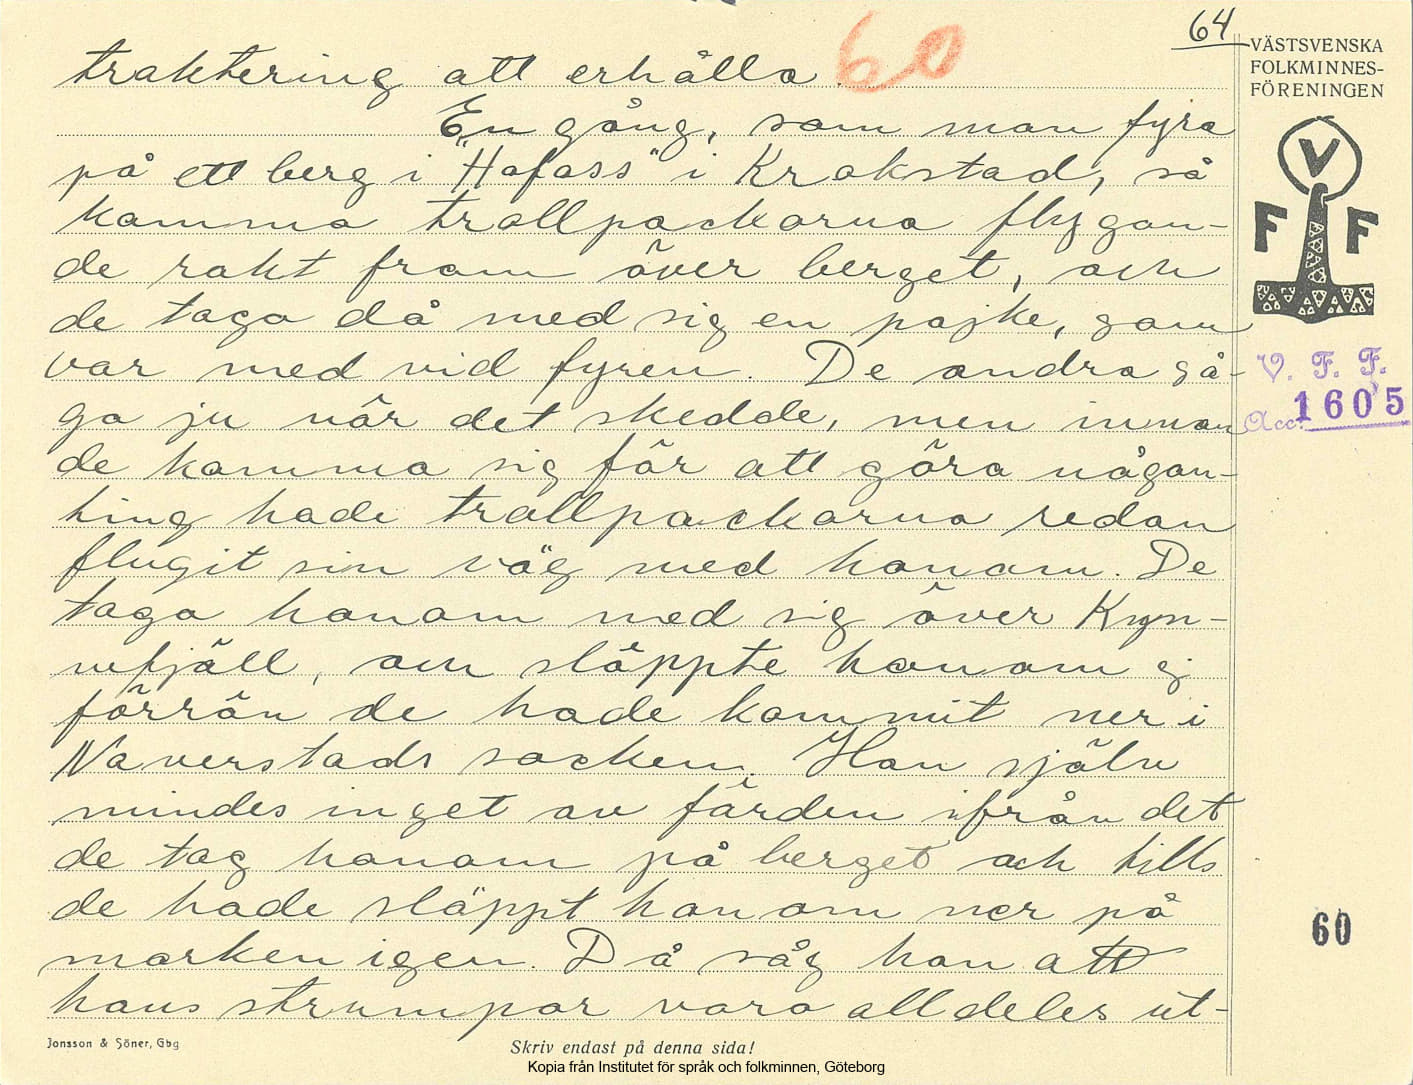 64
60
VÄSTSVENSKA
FOLKMINNES-
FÖRENINGEN
V
F F
V. F. F.
Acc. 1605
60
traktering att erhålla.
En gång, som man fyra
på ett berg i "Hafass" i Krokstad, så
komma trollpackorna flygan-
de rakt fram över berget, och
de togo då med sig en pojke, som
var med vid fyren. De andra så-
go ju när det skedde, men innan
de komma sig för att göra någon-
ting hade trollpackorna redan
flugit sin väg med honom. De
togo honom med sig över Kyn-
nefjäll, och släppte honom ej
förrän de hade kommit ner i
Naverstads socken. Han själv
mindes inget av färden ifrån det
de tog honom på berget och tills
de hade släppt honom ner på
marken igen. Då såg han att
hans strumpor voro alldeles ut-
Jonsson & Söner, Gbg
Skriv endast på denna sida!
Kopia från Institutet för språk och folkminnen, Göteborg